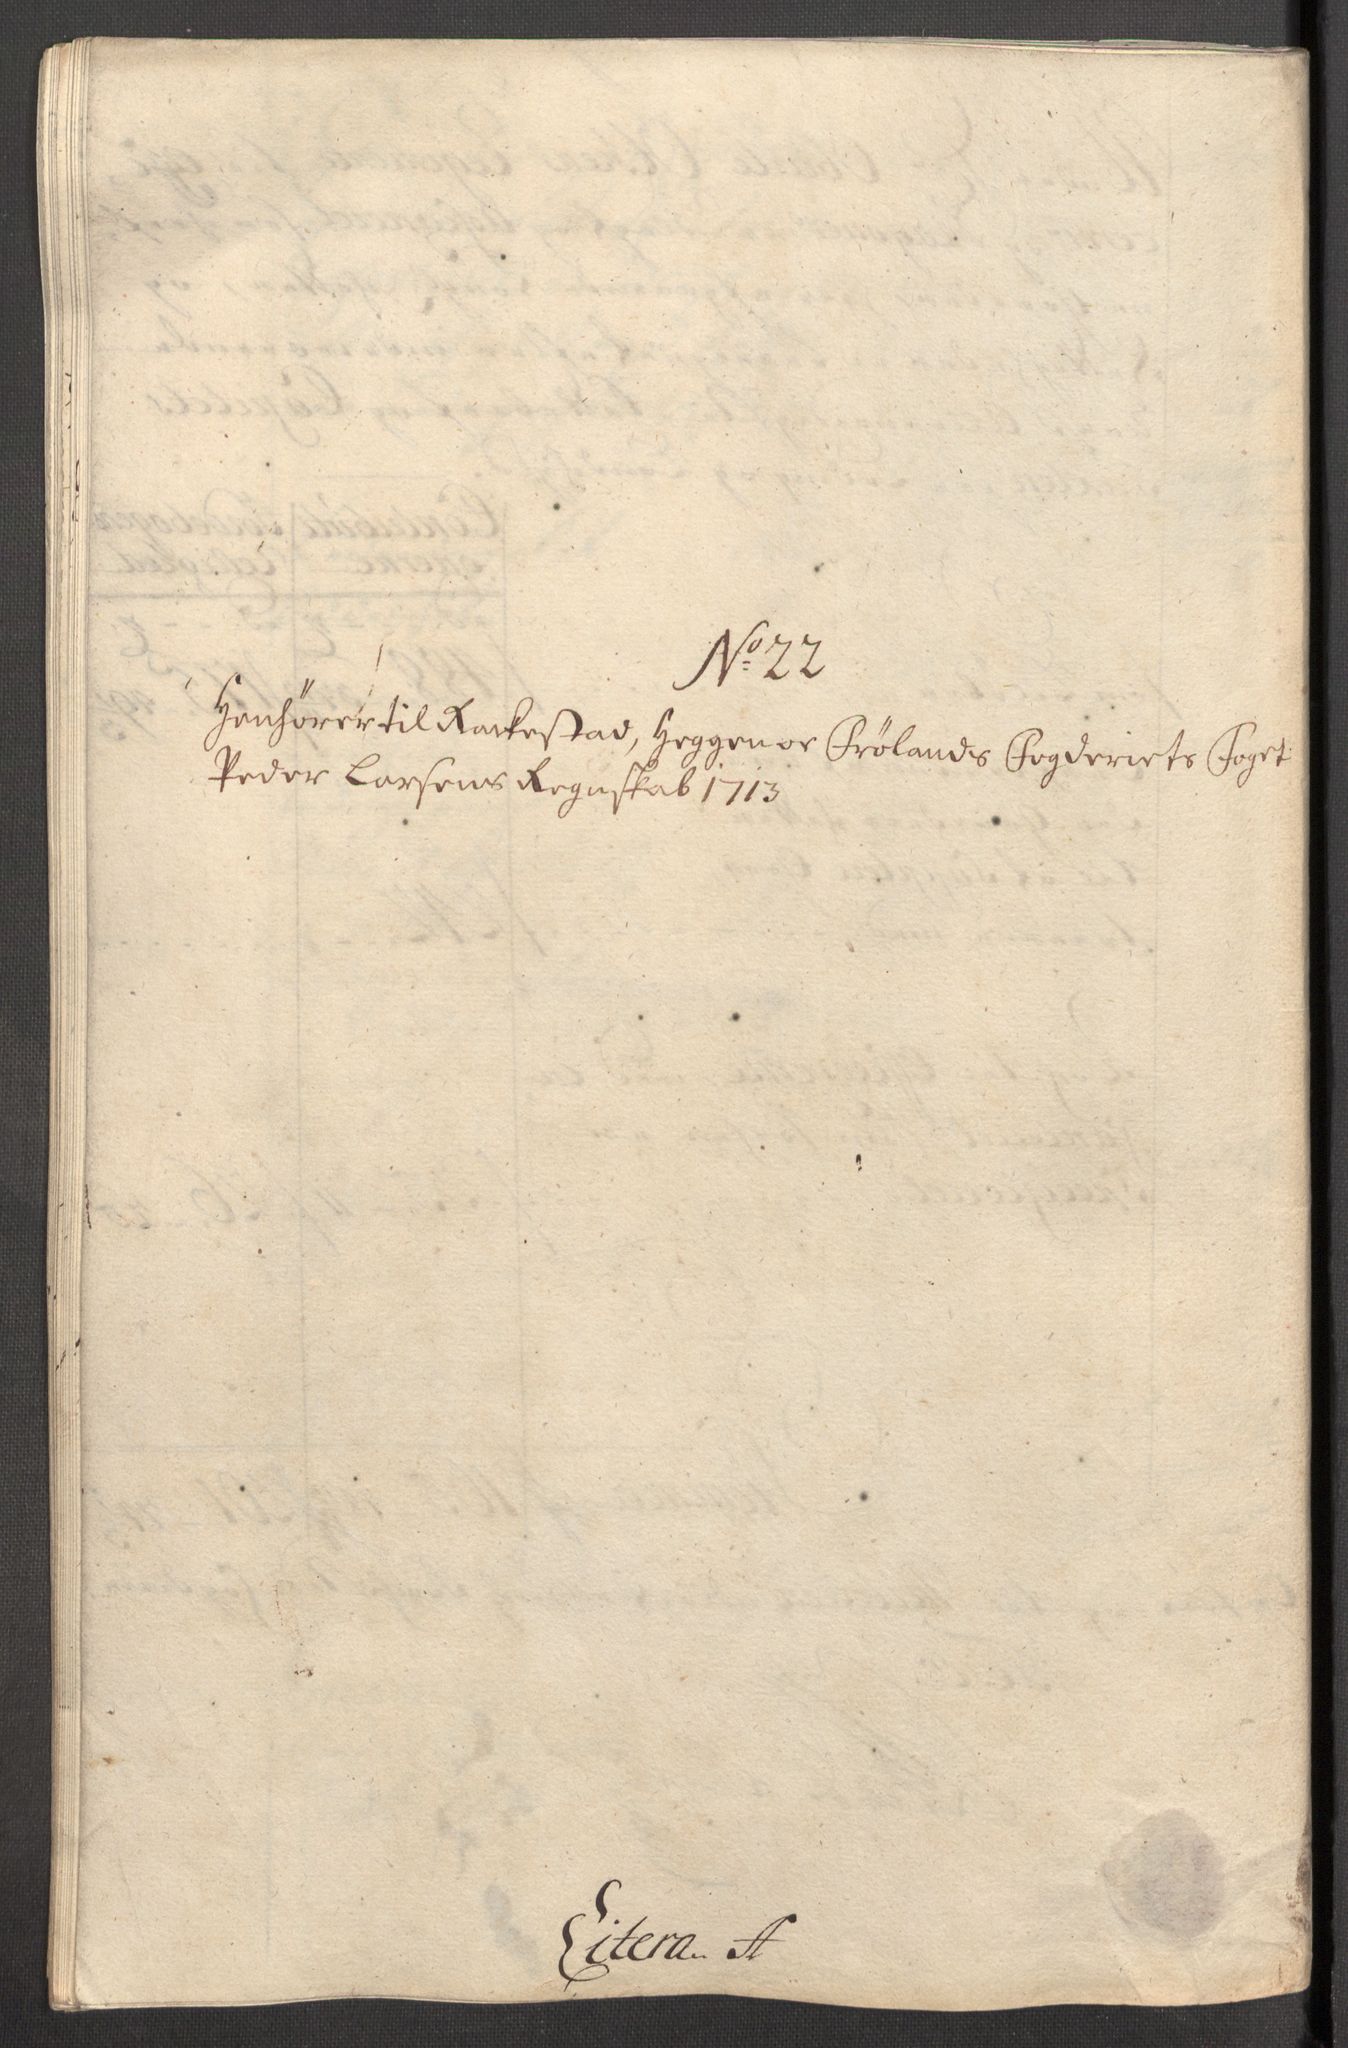 No 22
Henhörer til Rackestad, Heggen oc Frölands Fogderiets Foget
Peder Larsens Regnskab 1713
Litera A